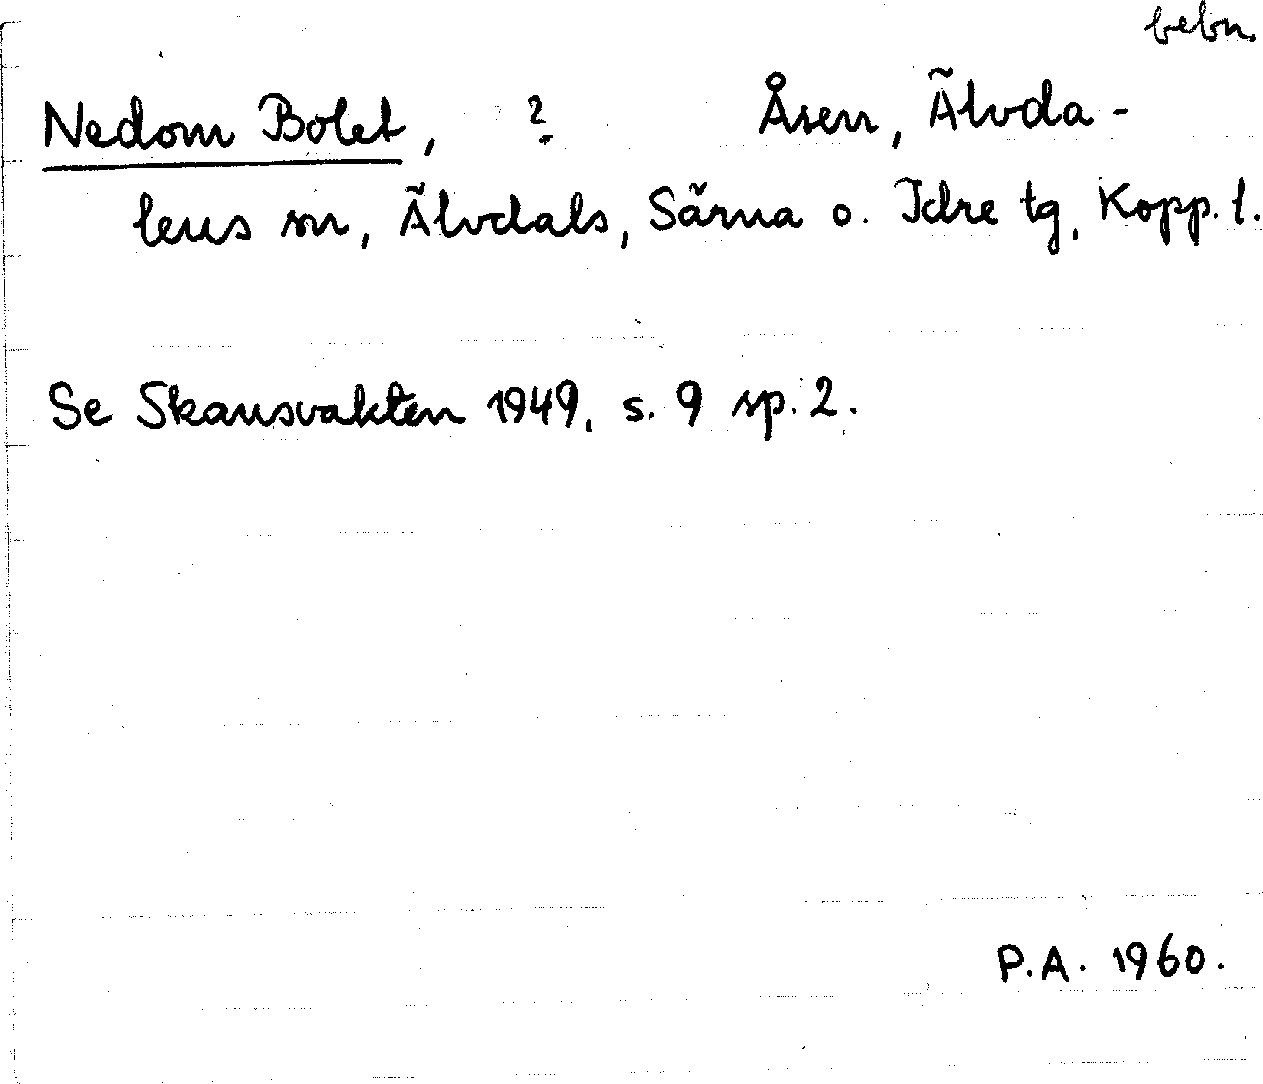 bebn.
Nedom Bolet, ? Åsen, Älvda-
lens sn, Älvdals, Särna o. Idre tg, Kopp. l.
Se Skansvakten 1949, s. 9 sp. 2.
P.A. 1960.